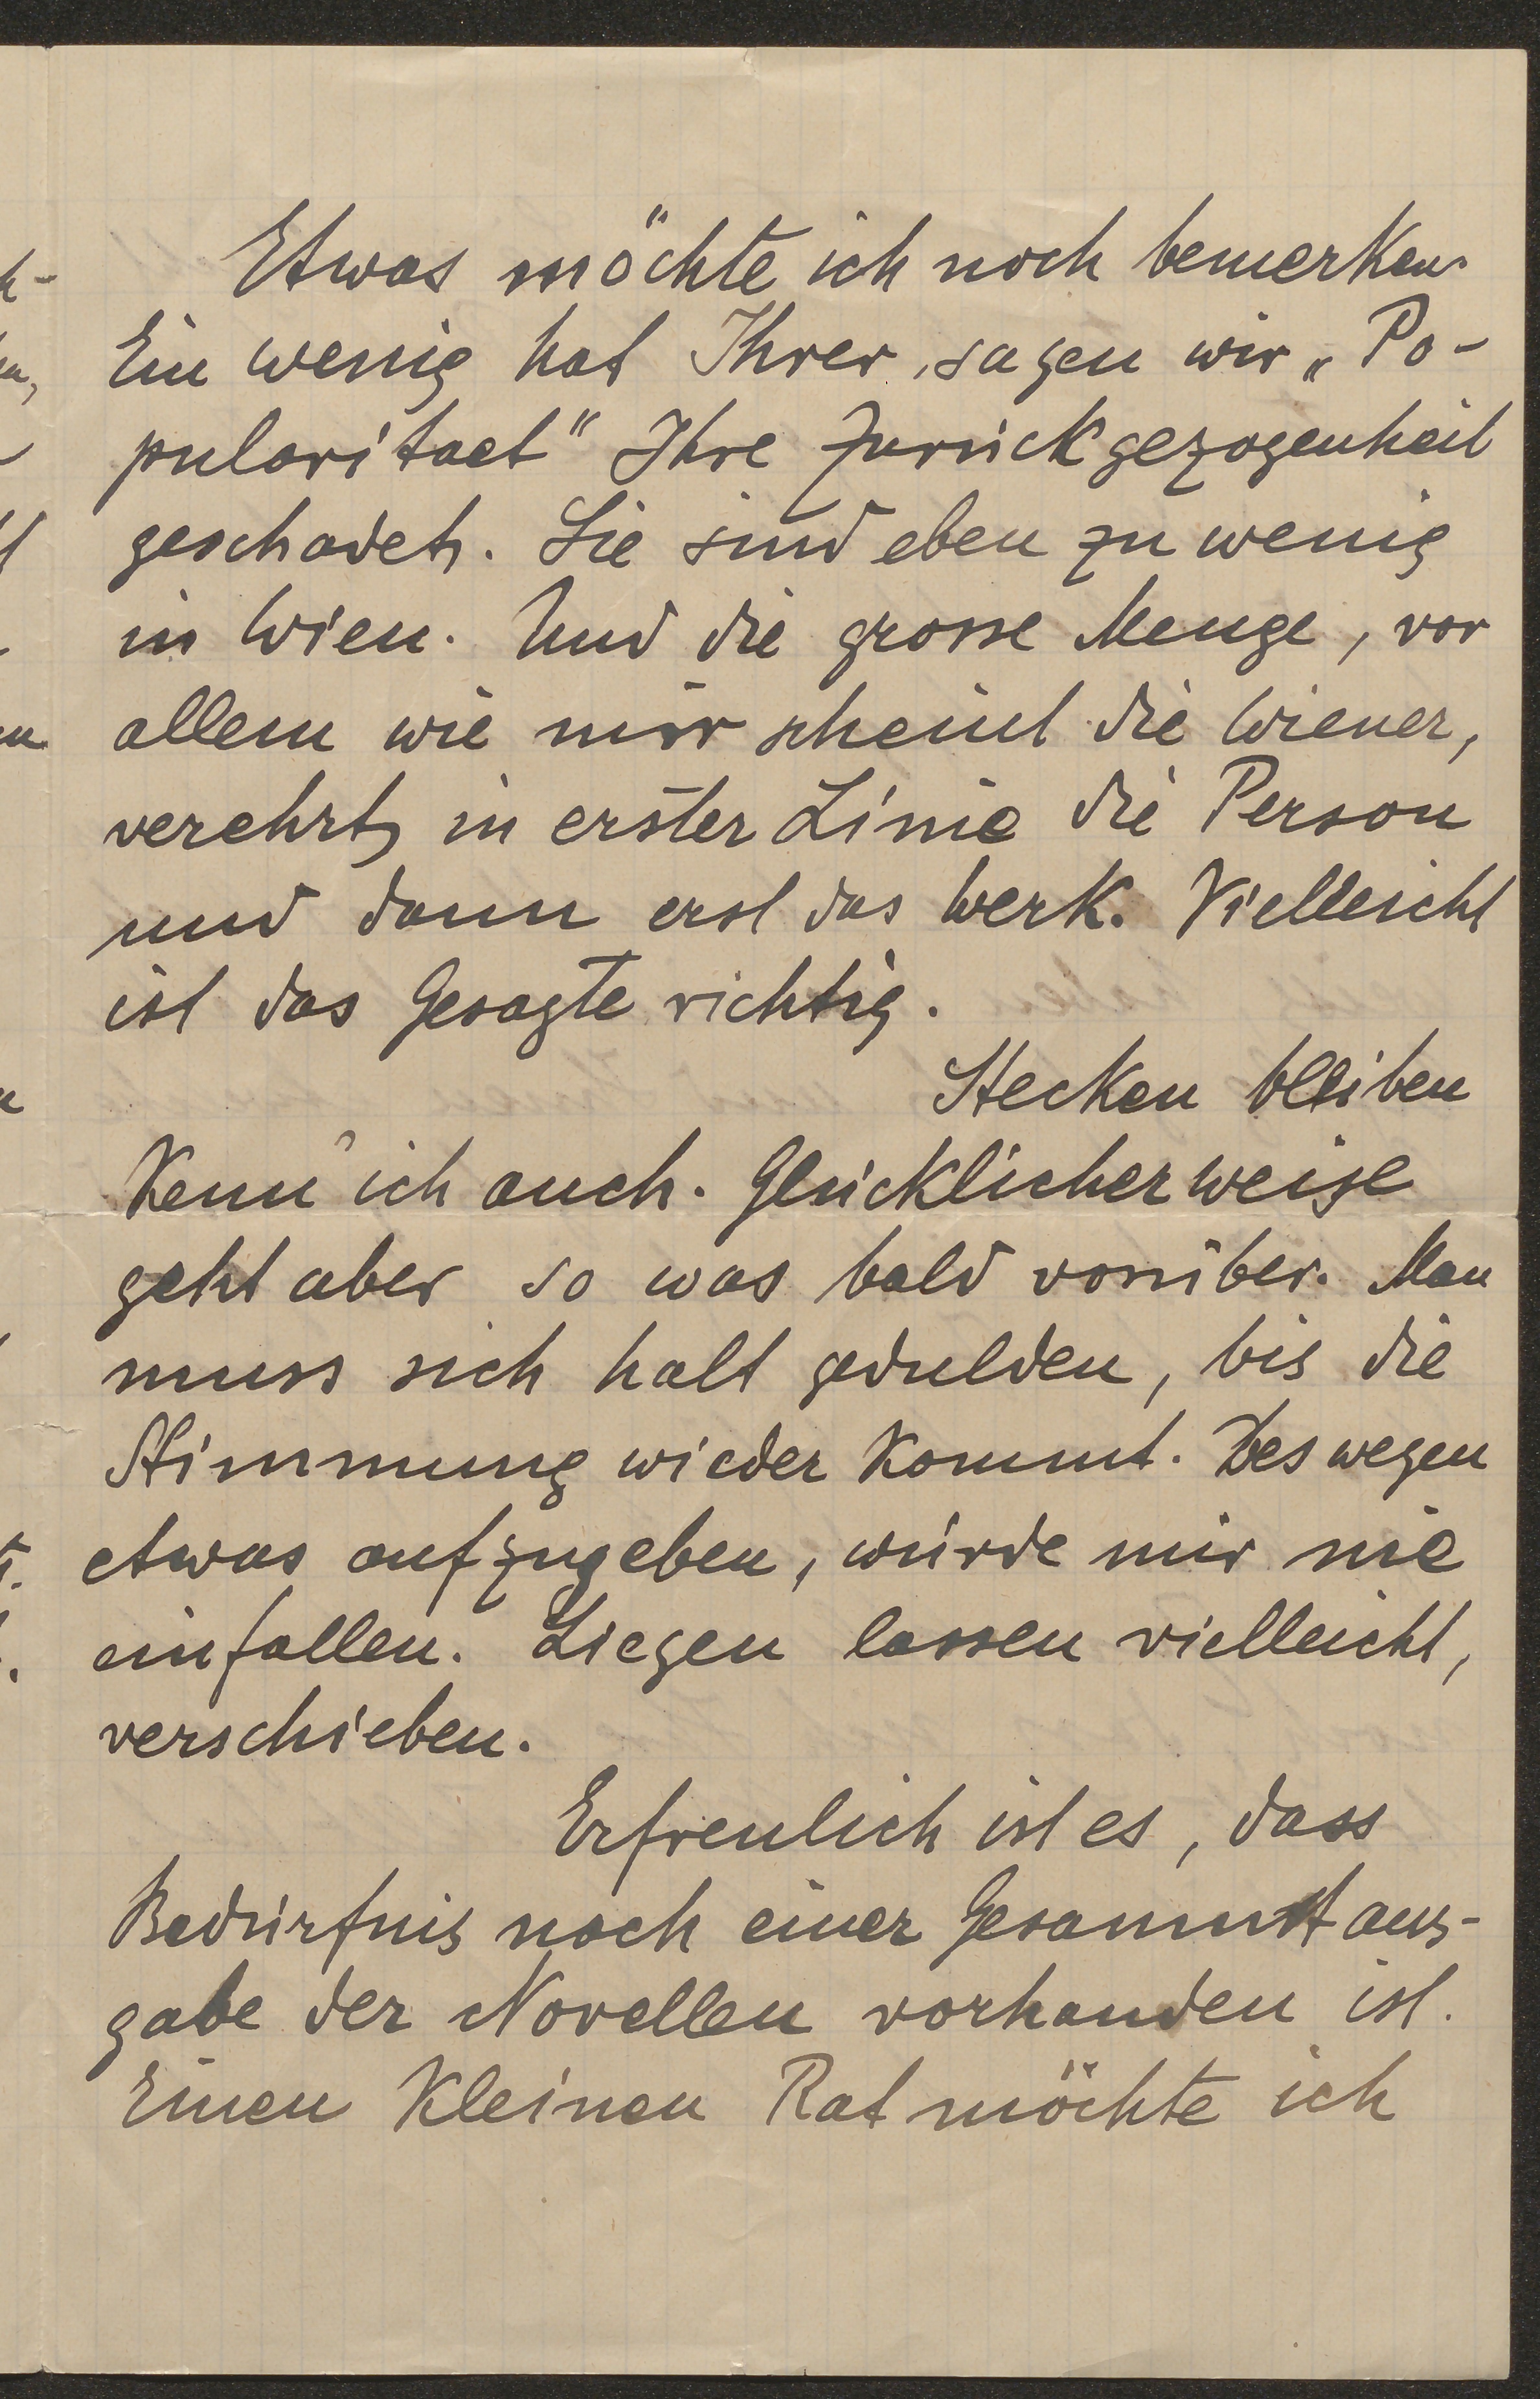 Etwas möchte ich noch bemerken.
Ein wenig hat Ihrer, sagen wir „Po-
pularitaet" Ihre Zurückgezogenheit
geschadet. Sie sind eben zu wenig
in Wien. Und die grosse Menge, vor
allem wie mir scheint die Wiener,
verehrt, in erster Linie die Person
und dann erst das Werk. Vielleicht
ist das Gesagte richtig.
Stecken bleiben
Kenn' ich auch. Glücklicherweise
geht aber so was bald vorüber. Man
muss sich halt gedulden, bis die
Stimmung wieder kommt. Deswegen
etwas aufzugeben, würde mir nie
einfallen. Liegen lassen vielleicht,
verschieben.
Erfreulich ist es, dass
Bedürfnis nach einer Gesammtaus-
gabe der Novellen vorhanden ist.
Einen kleinen Rat möchte ich